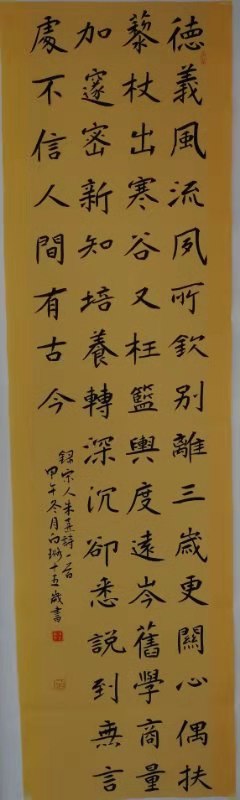 德義風流夙所欽别離三歲更關心偶扶
藜杖出寒谷又枉籃輿度遠岑舊學商量
加邃密新知培養轉深沉卻悉說到無言
處不信人間有古今
錄宋人朱熹詩一首
甲午冬月十五歲書